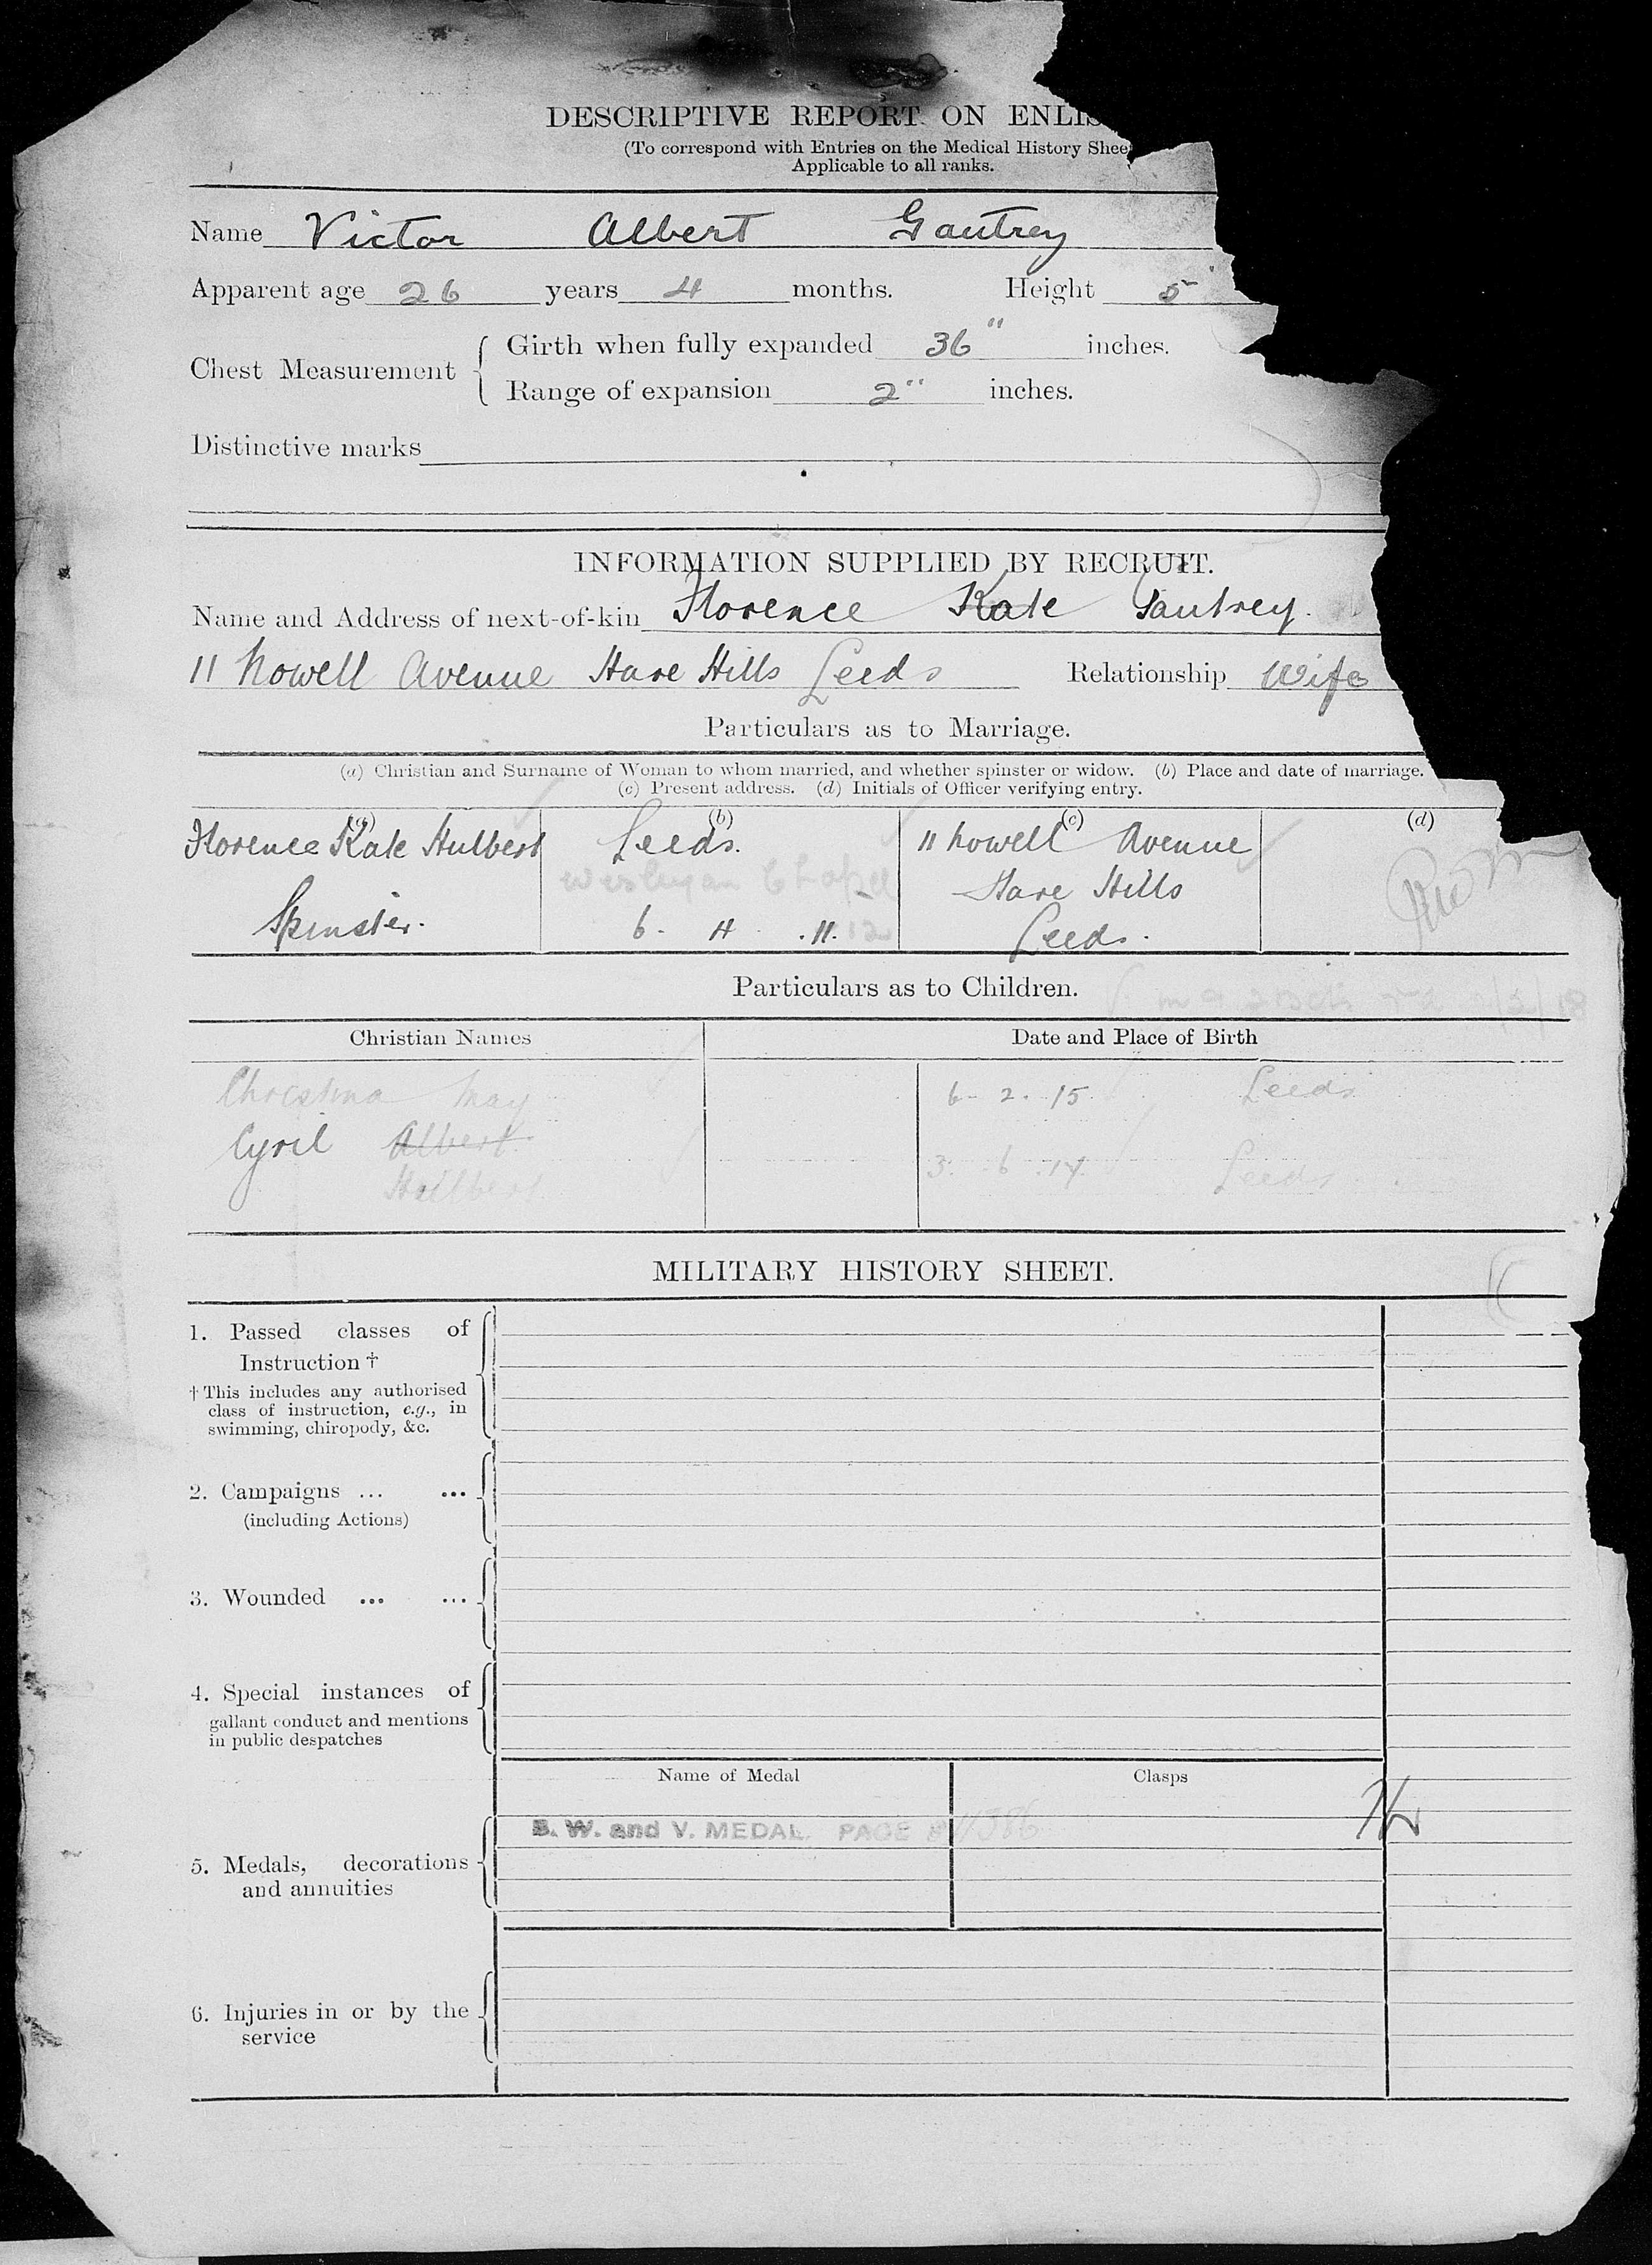 DESCRIPTIVE REPORT ON ENLIS
(To correspond with Entries on the Medical History Shee
Applicable to all ranks.
Name Victor Albert Gautrey
Apparent age 26 years 4 months. Height 5
Chest Measurement { Girth when fully expanded 36" inches.
Range of expansion 2" inches.
Distinctive marks
INFORMATION SUPPLIED BY RECRUIT.
Name and Address of next-of-kin Florence Kate Gautrey.
11 Nowell Avenue Hare Hills Leeds Relationship Wife
Particulars as to Marriage.
(a) Christian and Surname of Woman to whom married, and whether spinster or widow. (b) Place and date of marriage.
(c) Present address. (d) Initials of Officer verifying entry.
(a) (b) (c) (d)
Florence Kate Hulbert Leeds. 11 Nowell Avenue
Wesleyan Chapel Hare Hills
Spinster. 6. 4. 11. 12 Leeds.
Particulars as to Children.
Christian Names Date and Place of Birth
Christina May 6. 2. 15 Leeds
Cyril Albert. 3. 6. 14. Leeds
Hulbert
MILITARY HISTORY SHEET.
1. Passed classes of
Instruction †
† This includes any authorised
class of instruction, e.g., in
swimming, chiropody, &c.
2. Campaigns ... ...
(including Actions)
3. Wounded ... ...
4. Special instances of
gallant conduct and mentions
in public despatches
Name of Medal Clasps
B. W. and V. MEDAL. PAGE
5. Medals, decorations
and annuities
6. Injuries in or by the
service